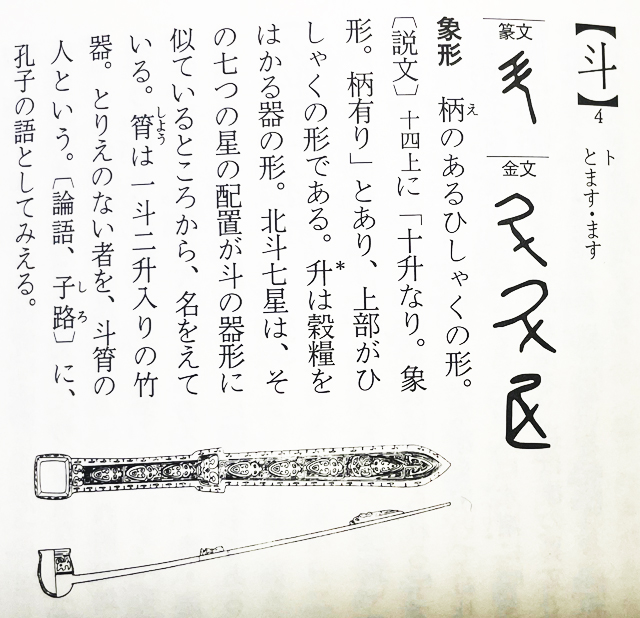 【斗】4 ト とます・ます
篆文
金文
象形 柄えのあるひしゃくの形。
〔説文〕十四上に「十升なり。象
形。柄有り」とあり、上部がひ
しゃくの形である。升*は穀糧を
はかる器の形。北斗七星は、そ
の七つの星の配置が斗の器形に
似ているところから、名をえて
いる。筲しようは一斗二升入りの竹
器。とりえのない者を、斗筲の
人という。〔論語、子路しろ〕に、
孔子の語としてみえる。